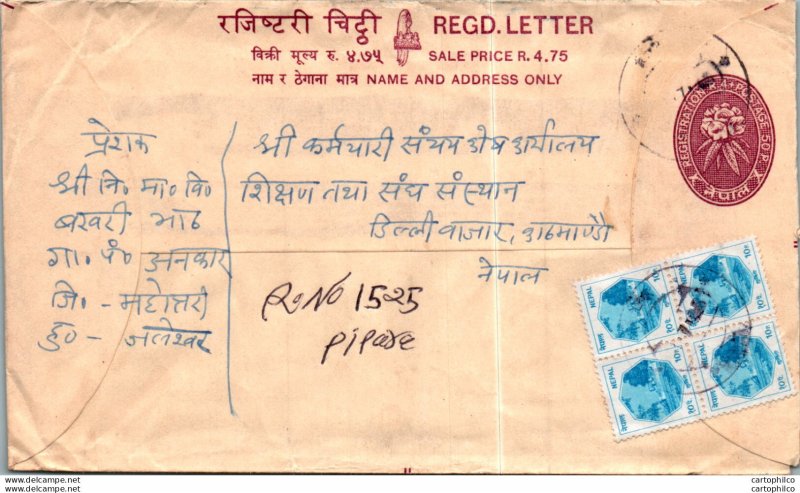 रजिष्टरी चिट्ठी REGD. LETTER
विक्री मूल्य रु. ४.७५ SALE PRICE R. 4.75
नाम र ठेगाना मात्र NAME AND ADDRESS ONLY
REGISTRATION 4+ POSTAGE 50 P.
नेपाल
प्रेशक
श्री नि० मा० वि०
बखरी भाठ
गा० पं० अनकार
जि० - महोत्तरी
हु० - जलेश्वर
श्री कर्मचारी संचय कोष कार्यालय
शिक्षण तथा संघ संस्थान
डिल्ली बाजार, काठमाण्डौ
नेपाल
R. No 1525
Pipara
NEPAL 10 P. नेपाल
NEPAL 10 P. नेपाल
NEPAL 10 P. नेपाल
NEPAL 10 P. नेपाल
www.cartophilic-info-exch.com
cartophilco
cartophilco